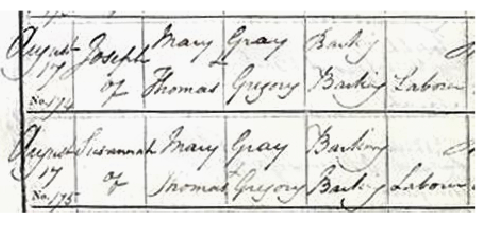 August Joseph Mary Gray Barking
17 of Thomas Gregory Barking Labourer
No. 174
August Susannah Mary Gray Barking
17 of Thomas Gregory Barking Labourer
No. 175